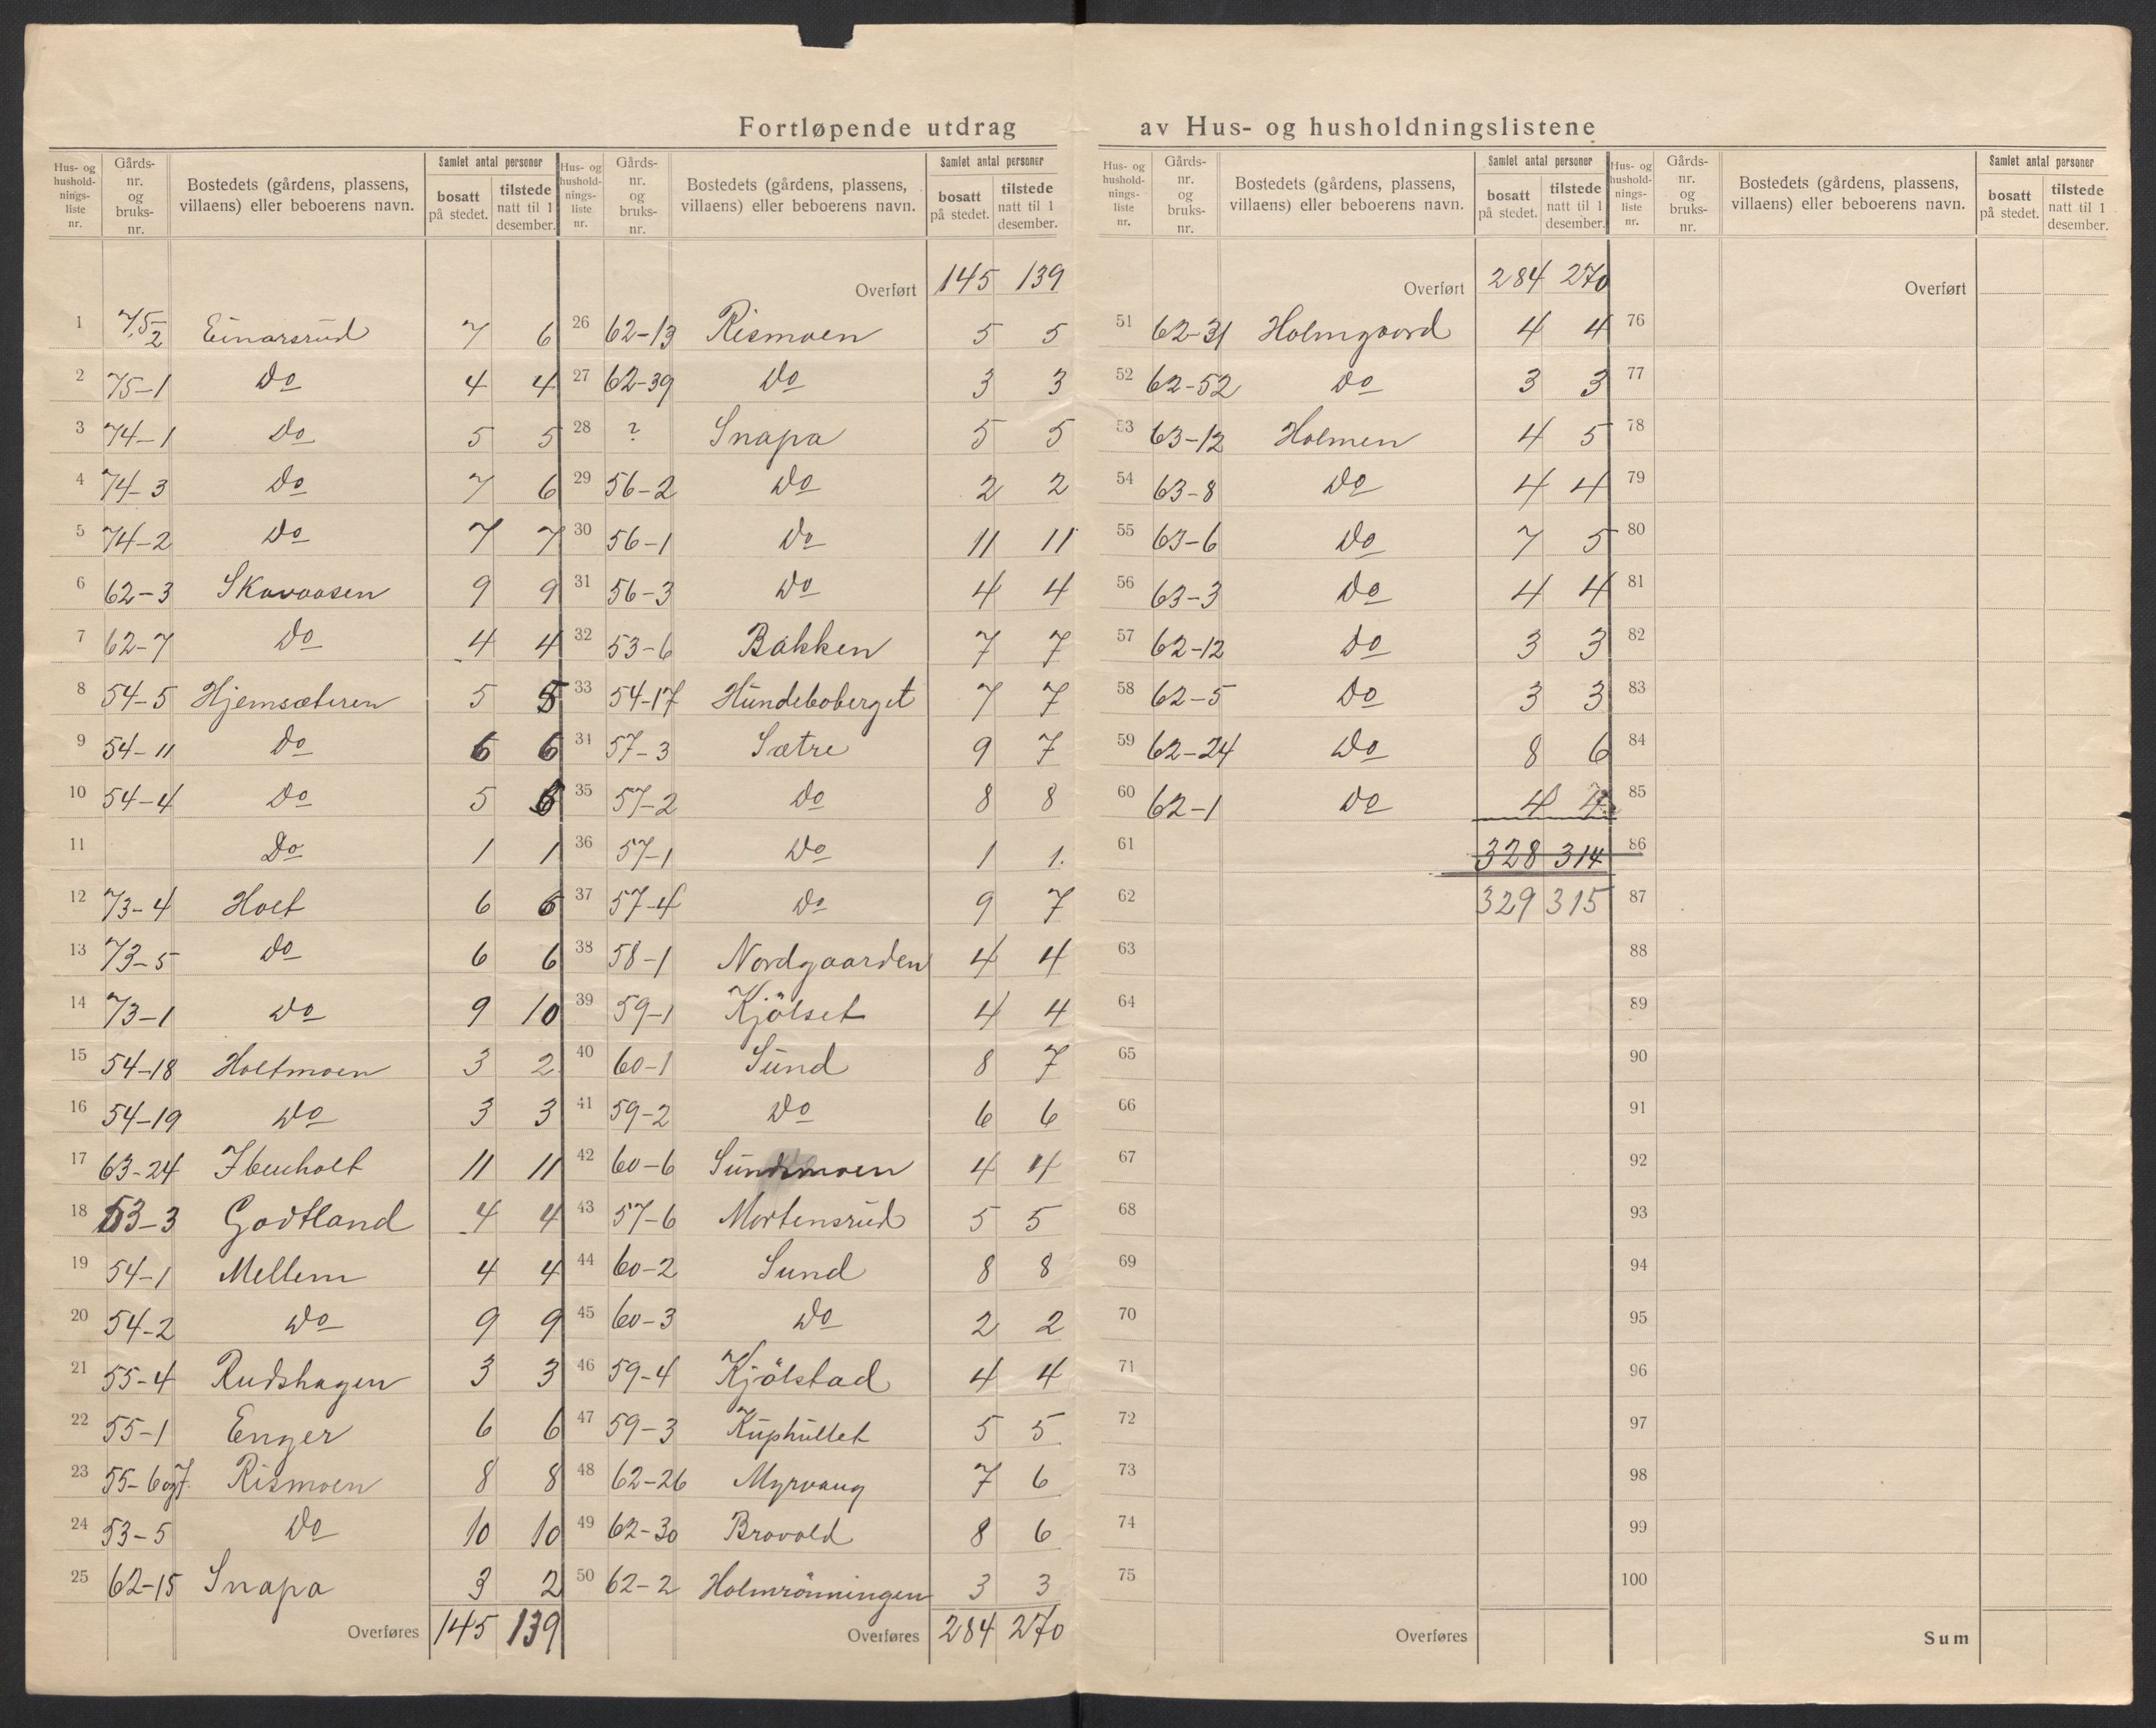 Fortløpende utdrag av Hus- og husholdningslistene
Hus- og hushold-nings-liste nr. | Gårds-nr. og bruks-nr. | Bostedets (gårdens, plassens, villaens) eller beboerens navn. | Samlet antal personer | bosatt på stedet. | tilstede natt til 1 desember.
1 75-2 Einarsrud 7 6
2 75-1 Do 4 4
3 74-1 Do 5 5
4 74-3 Do 7 6
5 74-2 Do 7 7
6 62-3 Skavaasen 9 9
7 62-7 Do 4 4
8 54-5 Hjemsæteren 5 5
9 54-11 Do 6 6
10 54-4 Do 5
11 Do 1 1
12 73-4 Holt 6 6
13 73-5 Do 6 6
14 73-1 Do 9 10
15 54-18 Holtmoen 3 2
16 54-19 Do 3 3
17 63-24 11 11
18 53-3 Godtland 4 4
19 54-1 Mellem 4 4
20 54-2 Do 9 9
21 55-4 Rudshagen 3 3
22 55-1 Enger 6 6
23 55-6og7 Rismoen 8 8
24 53-5 Do 10 10
25 62-15 Snapa 3 2
Overføres 145 139
Hus- og hushold-nings-liste nr. | Gårds-nr. og bruks-nr. | Bostedets (gårdens, plassens, villaens) eller beboerens navn. | Samlet antal personer | bosatt på stedet. | tilstede natt til 1 desember.
Overført 145 139
26 62-13 Rismoen 5 5
27 62-39 Do 3 3
28 ? Snapa 5 5
29 56-2 Do 2 2
30 56-1 Do 11 11
31 56-3 Do 4 4
32 53-6 Bakken 7 7
33 54-17 Hundeboberget 7 7
34 57-3 Sætre 9 7
35 57-2 Do 8 8
36 57-1 Do 1 1.
37 57-4 Do 9 7
38 58-1 Nordgaarden 4 4
39 59-1 Kjölset 4 4
40 60-1 Sund 8 7
41 59-2 Do 6 6
42 60-6 Sundmoen 4 4
43 57-6 Mortensrud 5 5
44 60-2 Sund 8 8
45 60-3 Do 2 2
46 59-4 Kjölstad 4 4
47 59-3 Kuphullet 5 5
48 62-26 Myrvang 7 6
49 62-30 Brovold 8 6
50 62-2 Holmrönningen 3 3
Overføres 284 270
Hus- og hushold-nings-liste nr. | Gårds-nr. og bruks-nr. | Bostedets (gårdens, plassens, villaens) eller beboerens navn. | Samlet antal personer | bosatt på stedet. | tilstede natt til 1 desember.
Overført 284 270
51 62-31 Holmgaard 4 4
52 62-52 Do 3 3
53 63-12 Holmen 4 5
54 63-8 Do 4 4
55 63-6 Do 7 5
56 63-3 Do 4 4
57 62-12 Do 3 3
58 62-5 Do 3 3
59 62-24 Do 8 6
60 62-1 Do 4 4
61 328 314
62 329 315
63
64
65
66
67
68
69
70
71
72
73
74
75
Overføres
Hus- og hushold-nings-liste nr. | Gårds-nr. og bruks-nr. | Bostedets (gårdens, plassens, villaens) eller beboerens navn. | Samlet antal personer | bosatt på stedet. | tilstede natt til 1 desember.
Overført
76
77
78
79
80
81
82
83
84
85
86
87
88
89
90
91
92
93
94
95
96
97
98
99
100
Sum